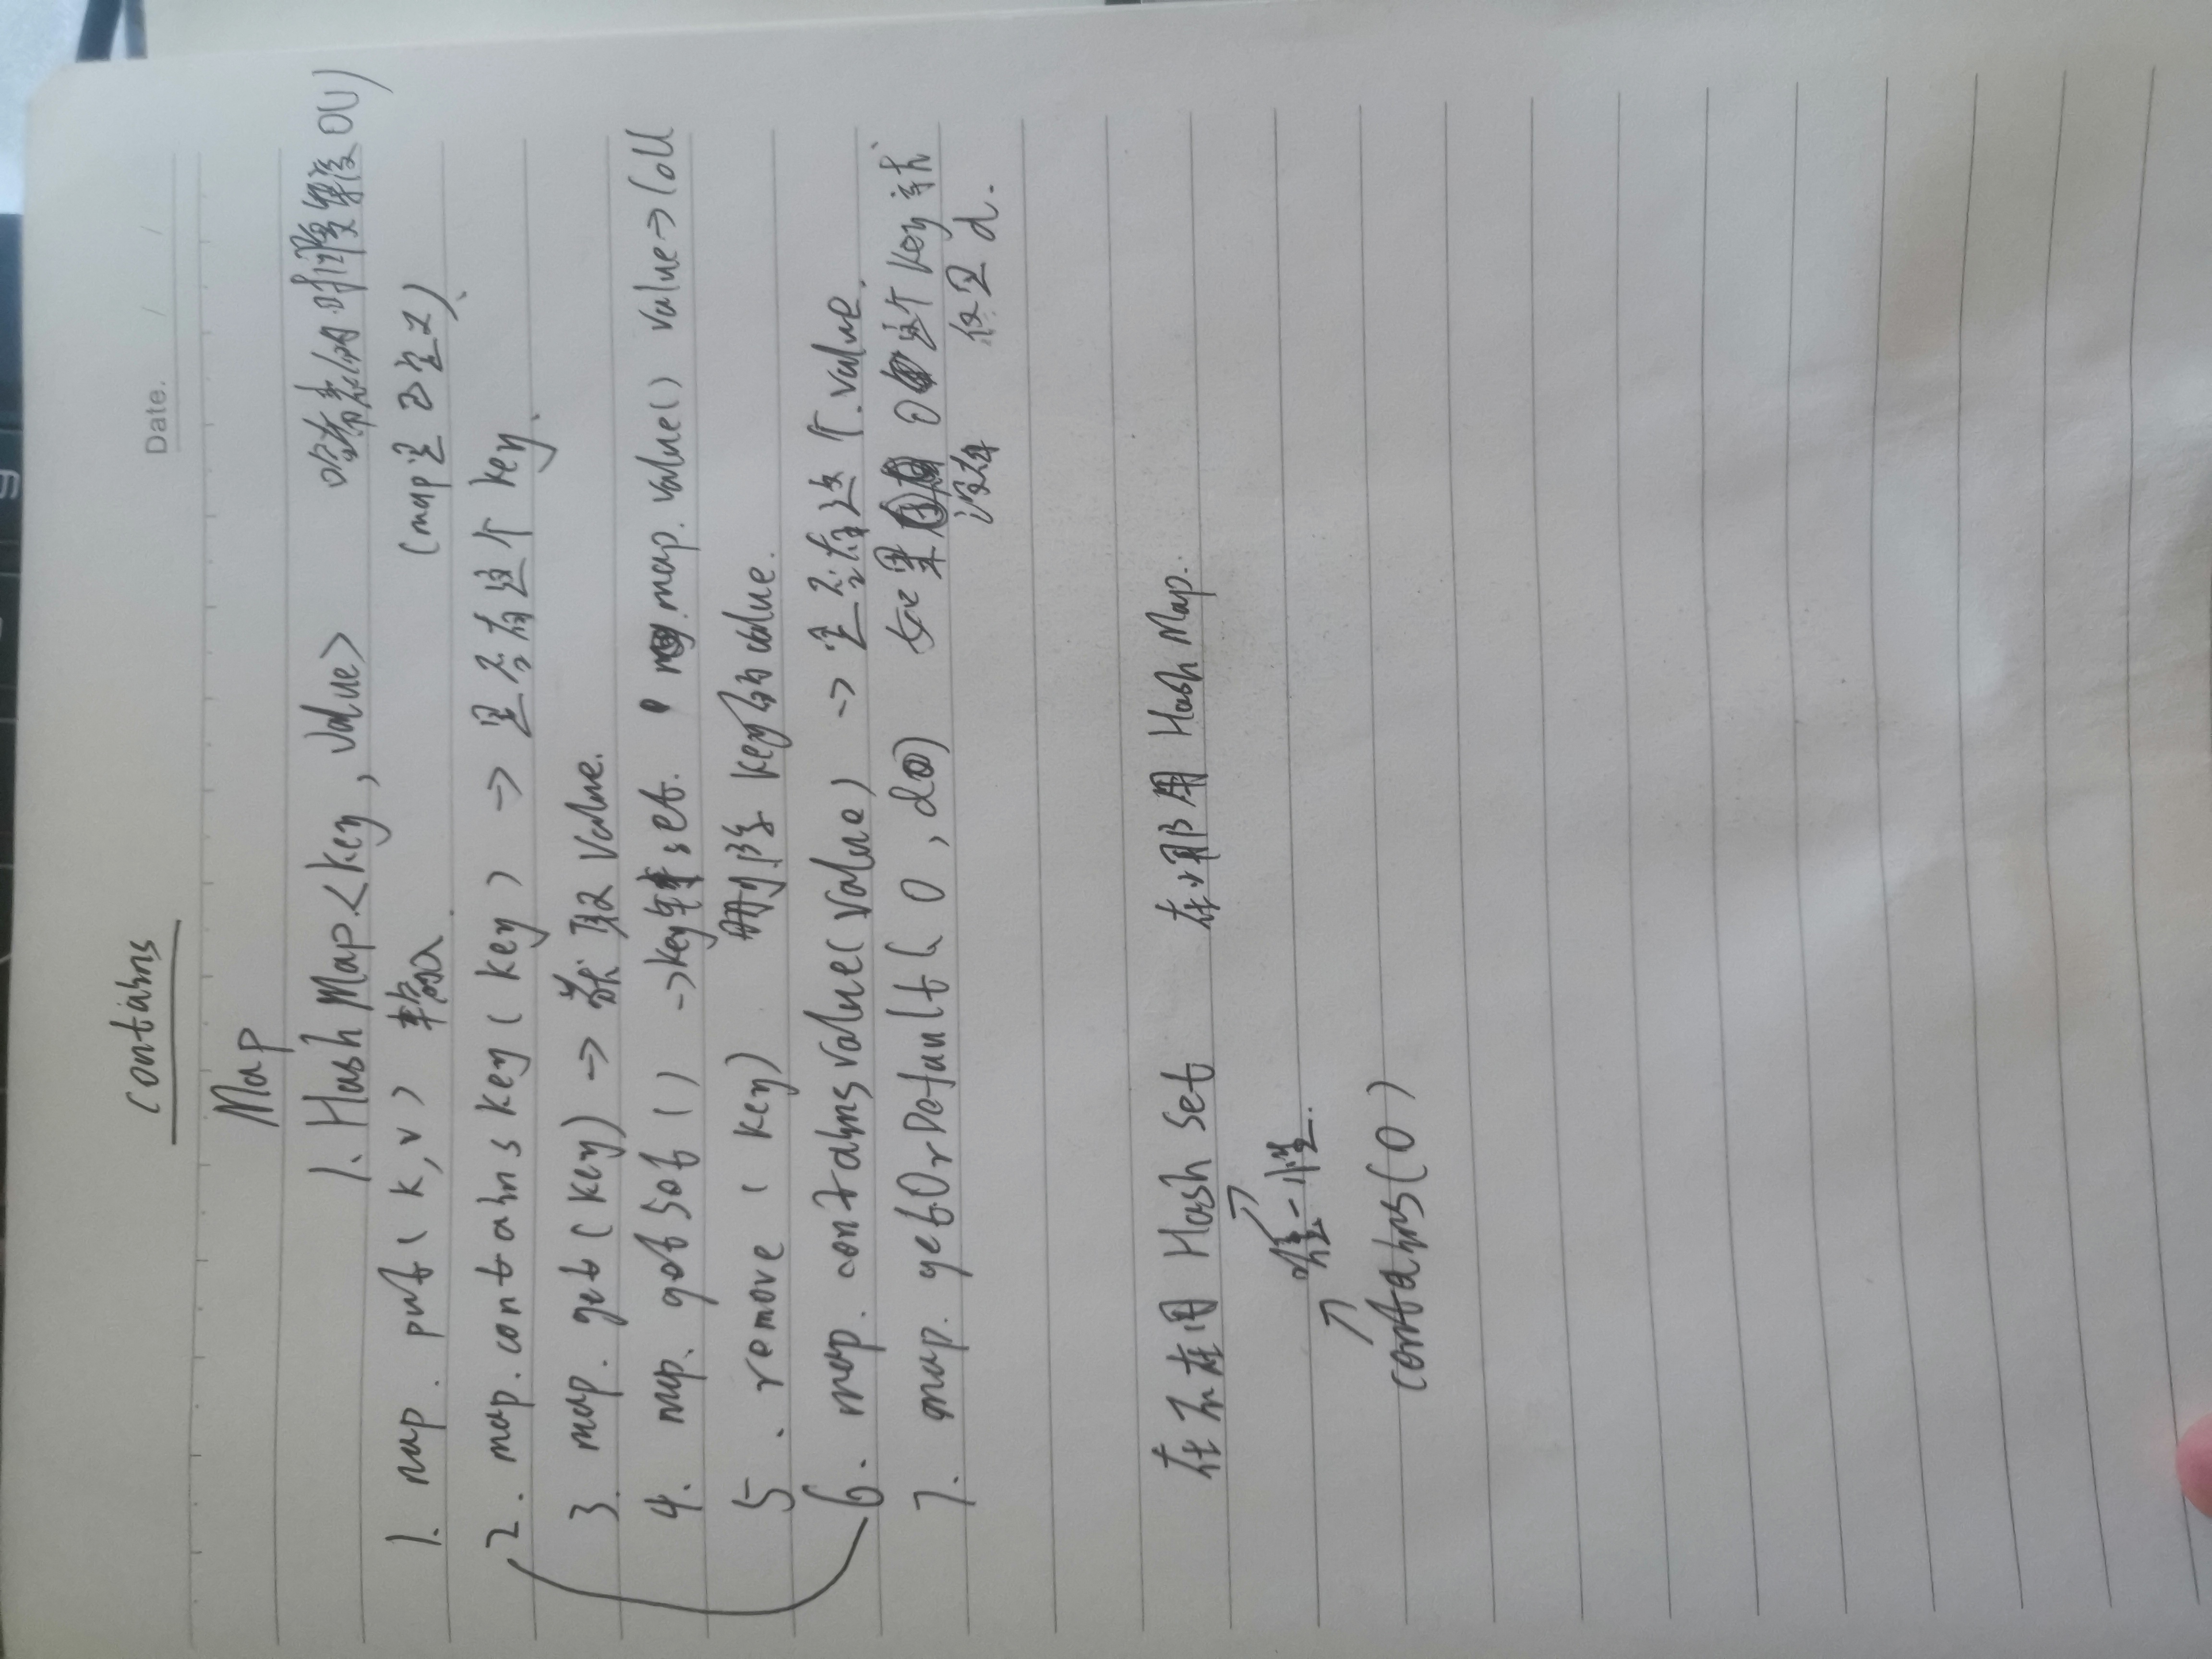 contains
Date. / /
Map
1. HashMap<key, Value> 哈希表的时间复杂度O(1)
1. map. put(k,v) 输入 (map是已定义)
2. map.containskey(key) → 是否有这个key.
3. map. get(key) → 获取value.
4. map. getSet() →key转set. map.value() value→Coll
5. remove(key) 删除key的value.
6. map. containsvalue(value) → 是否有这个.value.
7. map. getOrDefault(0, d) 如果 0 这个key就
没有 反回d.
在不在用Hash Set 在哪用HashMap.
唯一性.
contains(0)